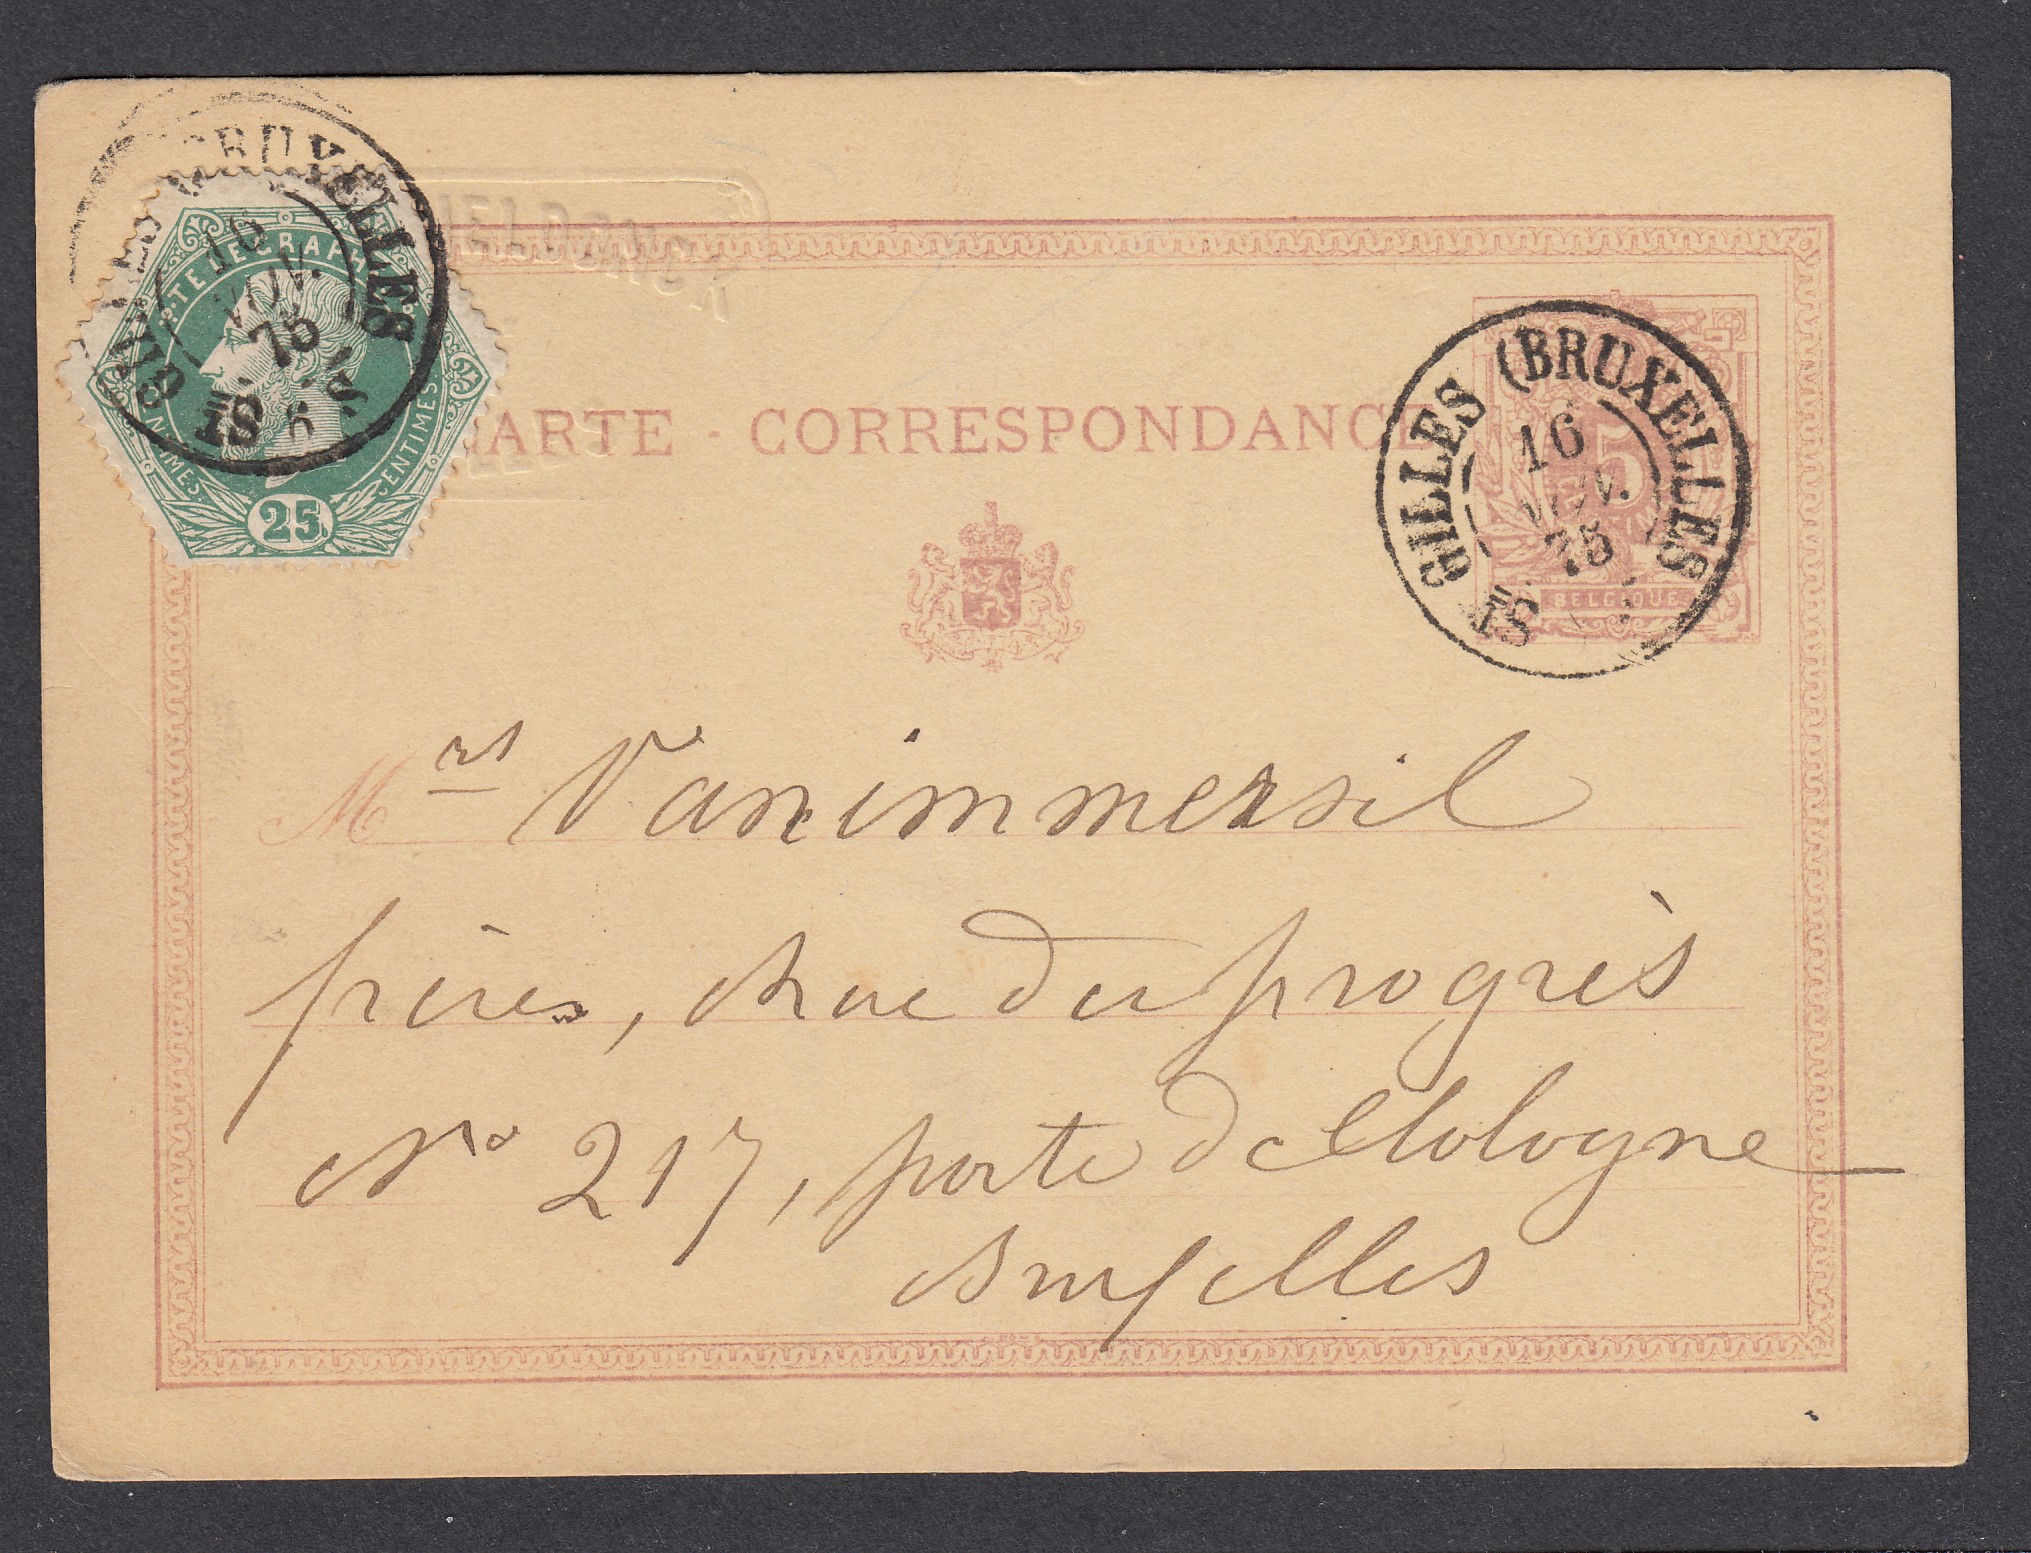 ST GILLES (BRUXELLES
16
NOV.
75
6 S
TÉLÉGRAPHE
CENTIMES. CENTIMES.
25
CARTE - CORRESPONDANCE
ST GILLES (BRUXELLES
16
NOV.
75
5
BELGIQUE
Mrs Vanimmersil
frères, Rue du progrès
No 217, porte de Cologne
Bruxelles